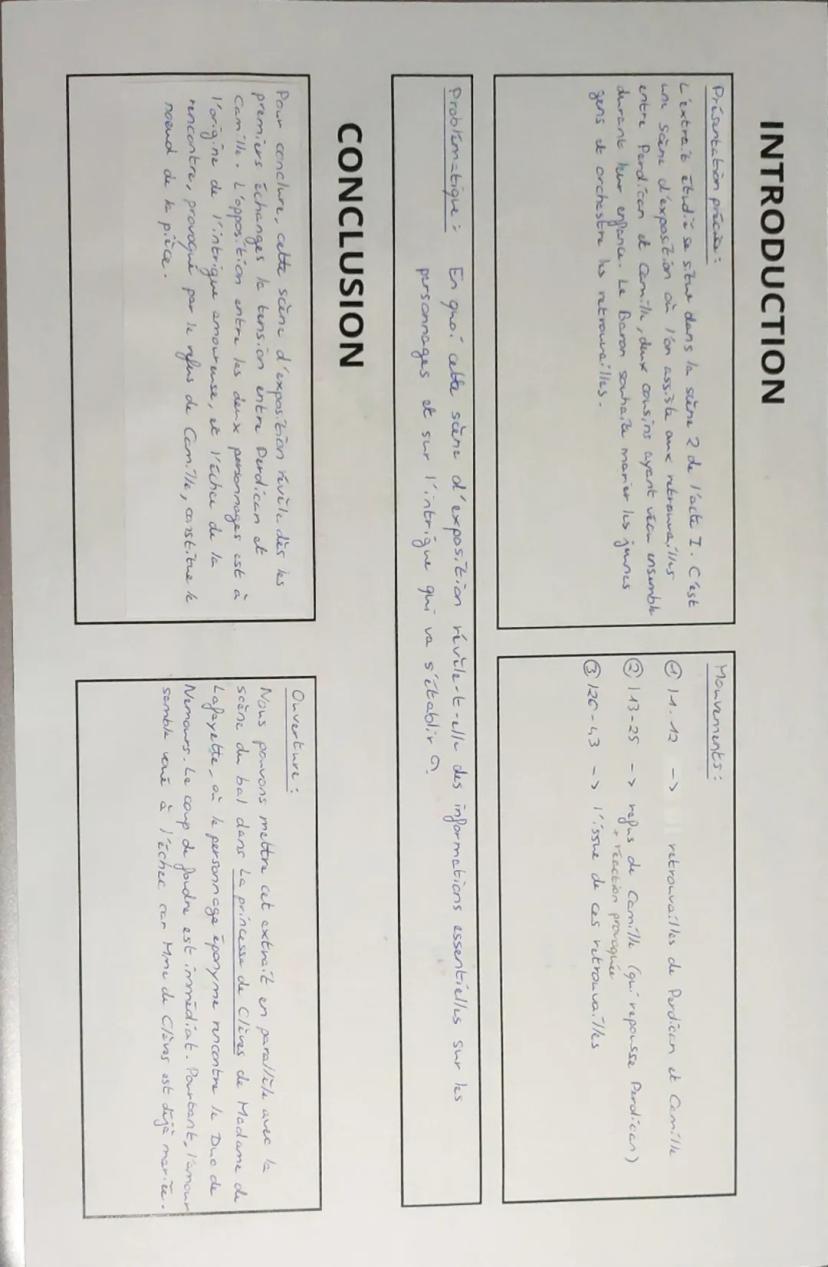 INTRODUCTION
Présentation précise :
L'extrait étudié se situe dans la scène 2 de l'acte I. C'est
une scène d'exposition où l'on assiste aux retrouvailles
entre Perdican et Camille, deux cousins ayant vécu ensemble
durant leur enfance. Le Baron souhaite marier les jeunes
gens et orchestre les retrouvailles.
Mouvements :
① l1-12 -> retrouvailles de Perdican et Camille
② l13-25 -> refus de Camille (qui repousse Perdican)
+ réaction provoquée
③ l26-43 -> l'issue de ces retrouvailles
Problématique : En quoi cette scène d'exposition révèle-t-elle des informations essentielles sur les
personnages et sur l'intrigue qui va s'établir ?
CONCLUSION
Pour conclure, cette scène d'exposition révèle dès les
premiers échanges la tension entre Perdican et
Camille. L'opposition entre les deux personnages est à
l'origine de l'intrigue amoureuse, et l'échec de la
rencontre, provoqué par le refus de Camille, constitue le
noeud de la pièce.
Ouverture :
Nous pouvons mettre cet extrait en parallèle avec la
scène du bal dans La princesse de Clèves de Madame de
Lafayette, où le personnage éponyme rencontre le Duc de
Nemours. Le coup de foudre est immédiat. Pourtant, l'amour
semble voué à l'échec car Mme de Clèves est déjà mariée.